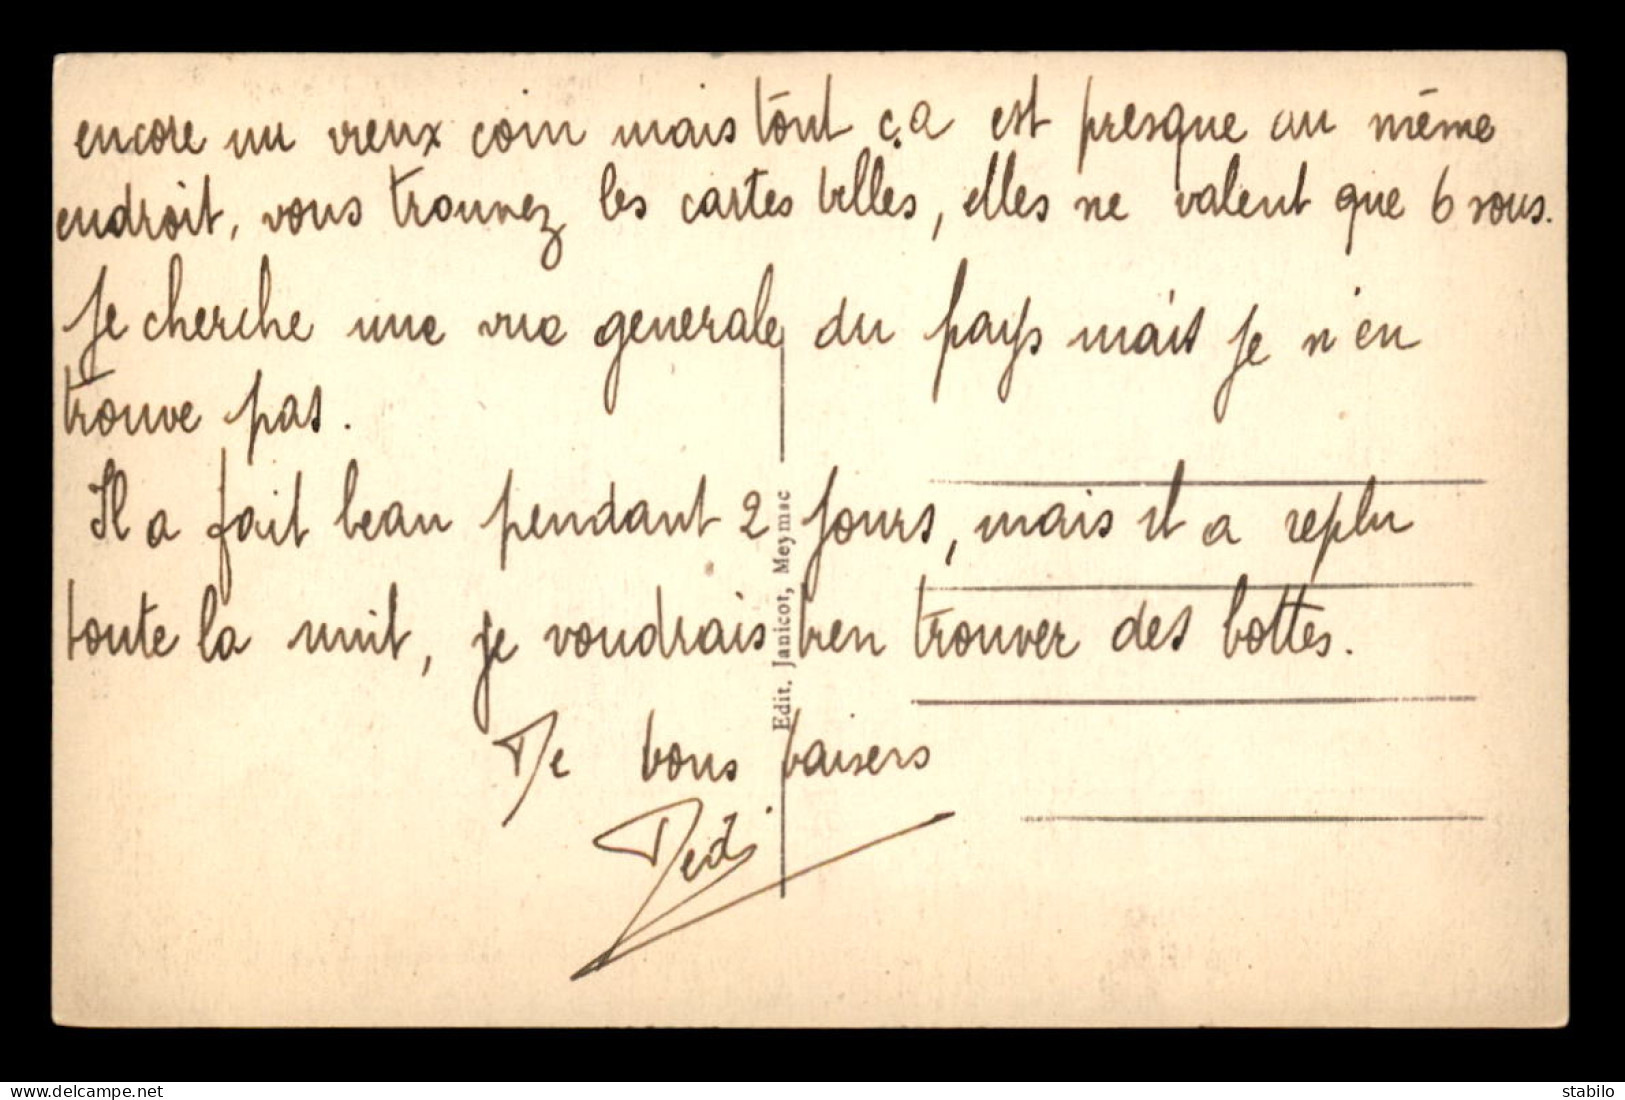 encore un vieux coin mais tout ça est presque au même
endroit, vous trouvez les cartes belles, elles ne valent que 6 sous.
Je cherche une vue generale du pays mais je n'en
trouve pas.
Il a fait beau pendant 2 jours, mais il a replu
toute la nuit, je voudrais bien trouver des bottes.
De bons baisers
Dedi
Edit. Janicot, Meymac
www.delcampe.net
stabilo